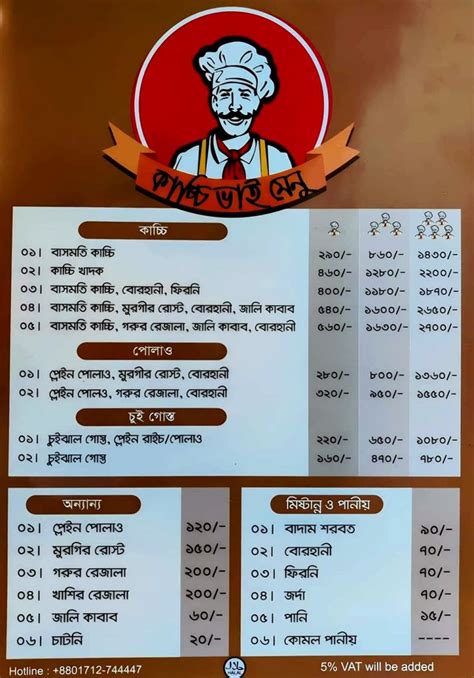 কাচ্চি ভাই মেনু
কাচ্চি
০১। বাসমতি কাচ্চি ২৯০/- ৮৬০/- ১৪৩০/-
০২। কাচ্চি খাদক ৪৬০/- ১২৮০/- ২২০০/-
০৩। বাসমতি কাচ্চি, বোরহানী, ফিরনি ৪০০/- ১১৮০/- ১৮৭০/-
০৪। বাসমতি কাচ্চি, মুরগীর রোস্ট, বোরহানী, জালি কাবাব ৫৪০/- ১৬০০/- ২৬৫০/-
০৫। বাসমতি কাচ্চি, গরুর রেজালা, জালি কাবাব, বোরহানী ৫৬০/- ১৬৩০/- ২৭০০/-
পোলাও
০১। প্লেইন পোলাও, মুরগীর রোস্ট, বোরহানী ২৮০/- ৮০০/- ১৩৬০/-
০২। প্লেইন পোলও, গরুর রেজালা, বোরহানী ৩২০/- ৯৫০/- ১৫৫০/-
চুই গোস্ত
০১। চুইঝাল গোস্ত, প্লেইন রাইচ/পোলাও ২২০/- ৬৫০/- ১০৮০/-
০২। চুইঝাল গোস্ত ১৬০/- ৪৭০/- ৭৮০/-
অন্যান্য
০১। প্লেইন পোলাও ১২০/-
০২। মুরগির রোস্ট ১৫০/-
০৩। গরুর রেজালা ২০০/-
০৪। খাশির রেজালা ২০০/-
০৫। জালি কাবাব ৬০/-
০৬। চাটনি ২০/-
মিষ্টান্ন ও পানীয়
০১। বাদাম শরবত ৯০/-
০২। বোরহানী ৭০/-
০৩। ফিরনি ৭০/-
০৪। জর্দা ৭০/-
০৫। পানি ১৫/-
০৬। কোমল পানীয় ----
Hotline : +8801712-744447
حلال
HALAL
5% VAT will be added